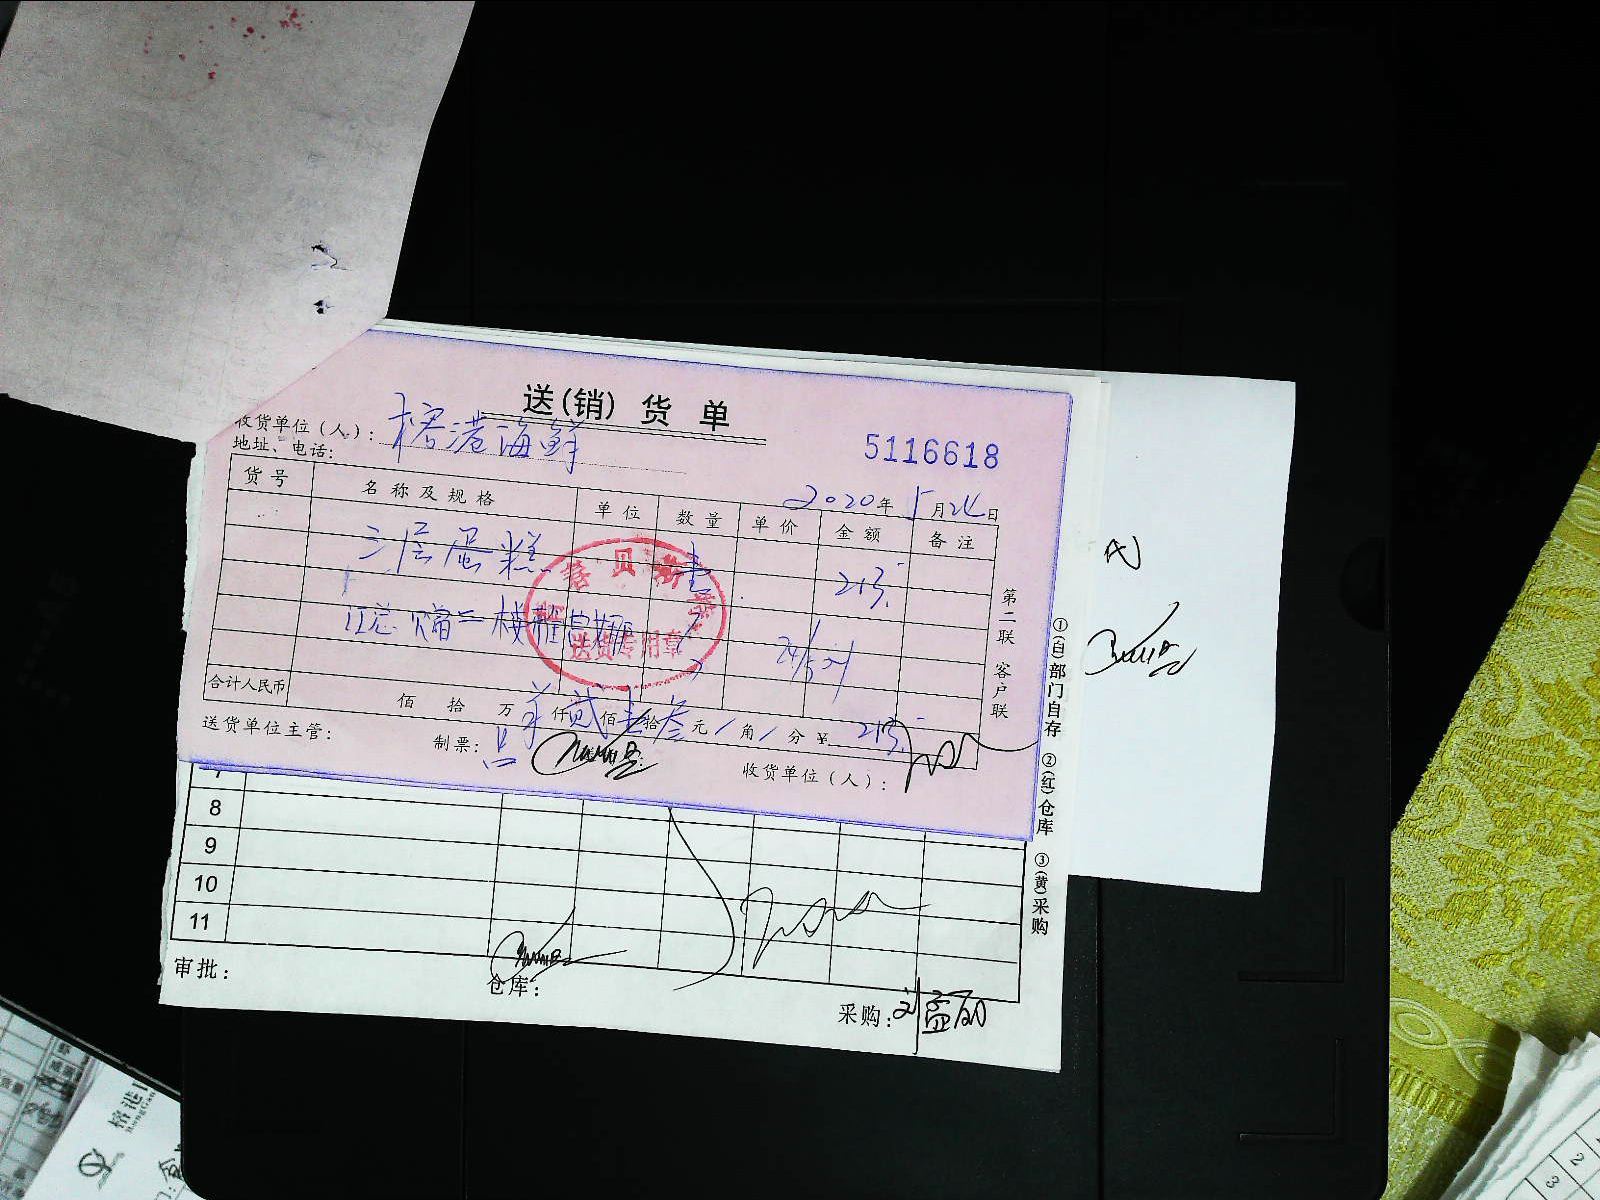 送(销)货单
收货单位(人): 榕港海鲜
5116618
地址、电话:
2020年5月24日
货号 名称及规格 单位 数量 单价 金额 备注
三层蛋糕 壹 213.
江总赠二楼
24/5
合计人民币 佰 拾 万 仟 贰 佰 拾 叁 元 / 角 / 分 ¥ 213.
送货单位主管: 制票: 收货单位(人):
第二联 客户联
贝斯
送货专用章
①(自)部门自存 ②(红)仓库 ③(黄)采购
7
8
9
10
11
审批: 仓库: 采购: 刘益丽
榕港
2
3